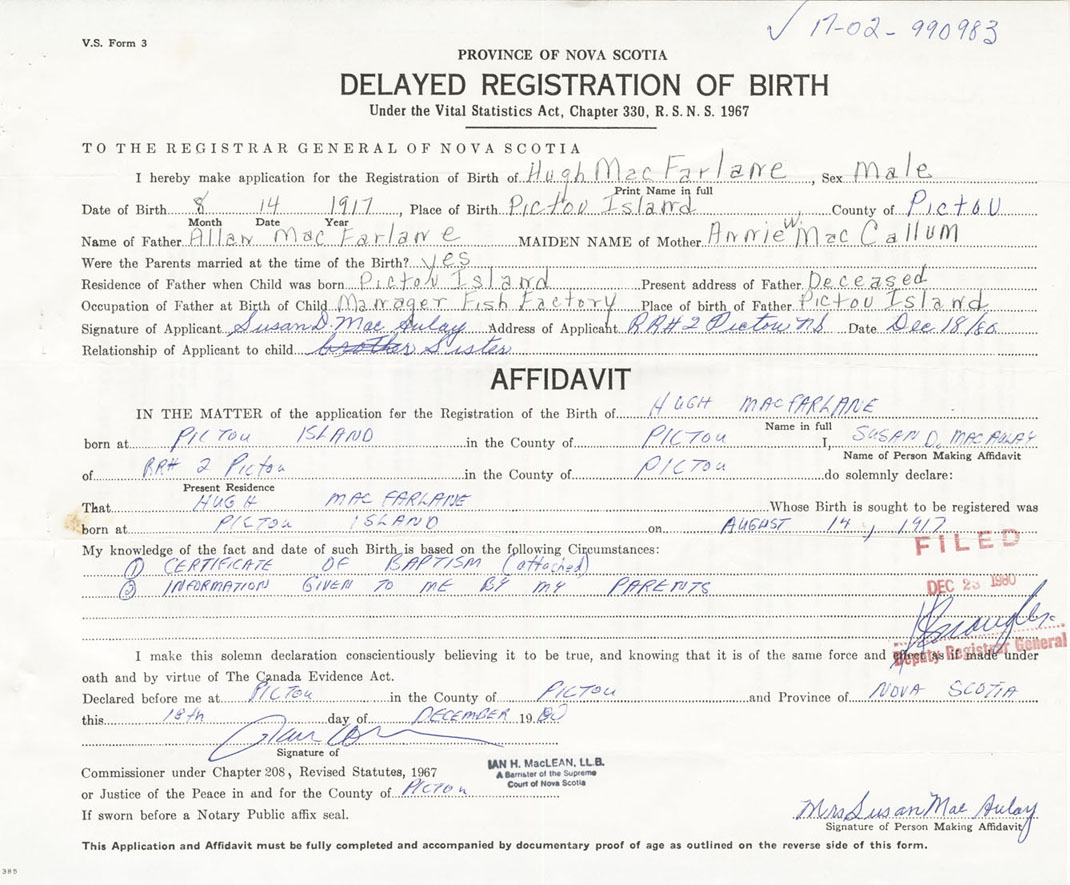 ✓ 17-02-990983
V.S. Form 3
PROVINCE OF NOVA SCOTIA
DELAYED REGISTRATION OF BIRTH
Under the Vital Statistics Act, Chapter 330, R. S. N. S. 1967
TO THE REGISTRAR GENERAL OF NOVA SCOTIA
I hereby make application for the Registration of Birth of Hugh MacFarlane, Sex Male
Print Name in full
Date of Birth 8 14 1917, Place of Birth Pictou Island, County of Pictou
Month Date Year
Name of Father Allan MacFarlane MAIDEN NAME of Mother Annie W. MacCallum
Were the Parents married at the time of the Birth? yes
Residence of Father when Child was born Pictou Island Present address of Father Deceased
Occupation of Father at Birth of Child Manager Fish Factory Place of birth of Father Pictou Island
Signature of Applicant Susan D. MacAulay Address of Applicant RR#2 Pictou NS Date Dec 18/80
Relationship of Applicant to child brother Sister
AFFIDAVIT
IN THE MATTER of the application for the Registration of the Birth of HUGH MACFARLANE
Name in full
born at PICTOU ISLAND in the County of PICTOU I, SUSAN D. MACAULAY
Name of Person Making Affidavit
of RR# 2 Pictou in the County of PICTOU do solemnly declare:
Present Residence
That HUGH MACFARLANE Whose Birth is sought to be registered was
born at PICTOU ISLAND on AUGUST 14, 1917
My knowledge of the fact and date of such Birth is based on the following Circumstances:
FILED
① CERTIFICATE OF BAPTISM (attached)
② INFORMATION GIVEN TO ME BY MY PARENTS
DEC 23 1980
Deputy Registrar General
I make this solemn declaration conscientiously believing it to be true, and knowing that it is of the same force and effect as if made under
oath and by virtue of The Canada Evidence Act.
Declared before me at PICTOU in the County of PICTOU and Province of NOVA SCOTIA
this 18th day of DECEMBER 1980
Signature of
Commissioner under Chapter 208, Revised Statutes, 1967
or Justice of the Peace in and for the County of PICTOU
IAN H. MacLEAN, LL.B.
A Barrister of the Supreme
Court of Nova Scotia
If sworn before a Notary Public affix seal.
Mrs Susan MacAulay
Signature of Person Making Affidavit
This Application and Affidavit must be fully completed and accompanied by documentary proof of age as outlined on the reverse side of this form.
385